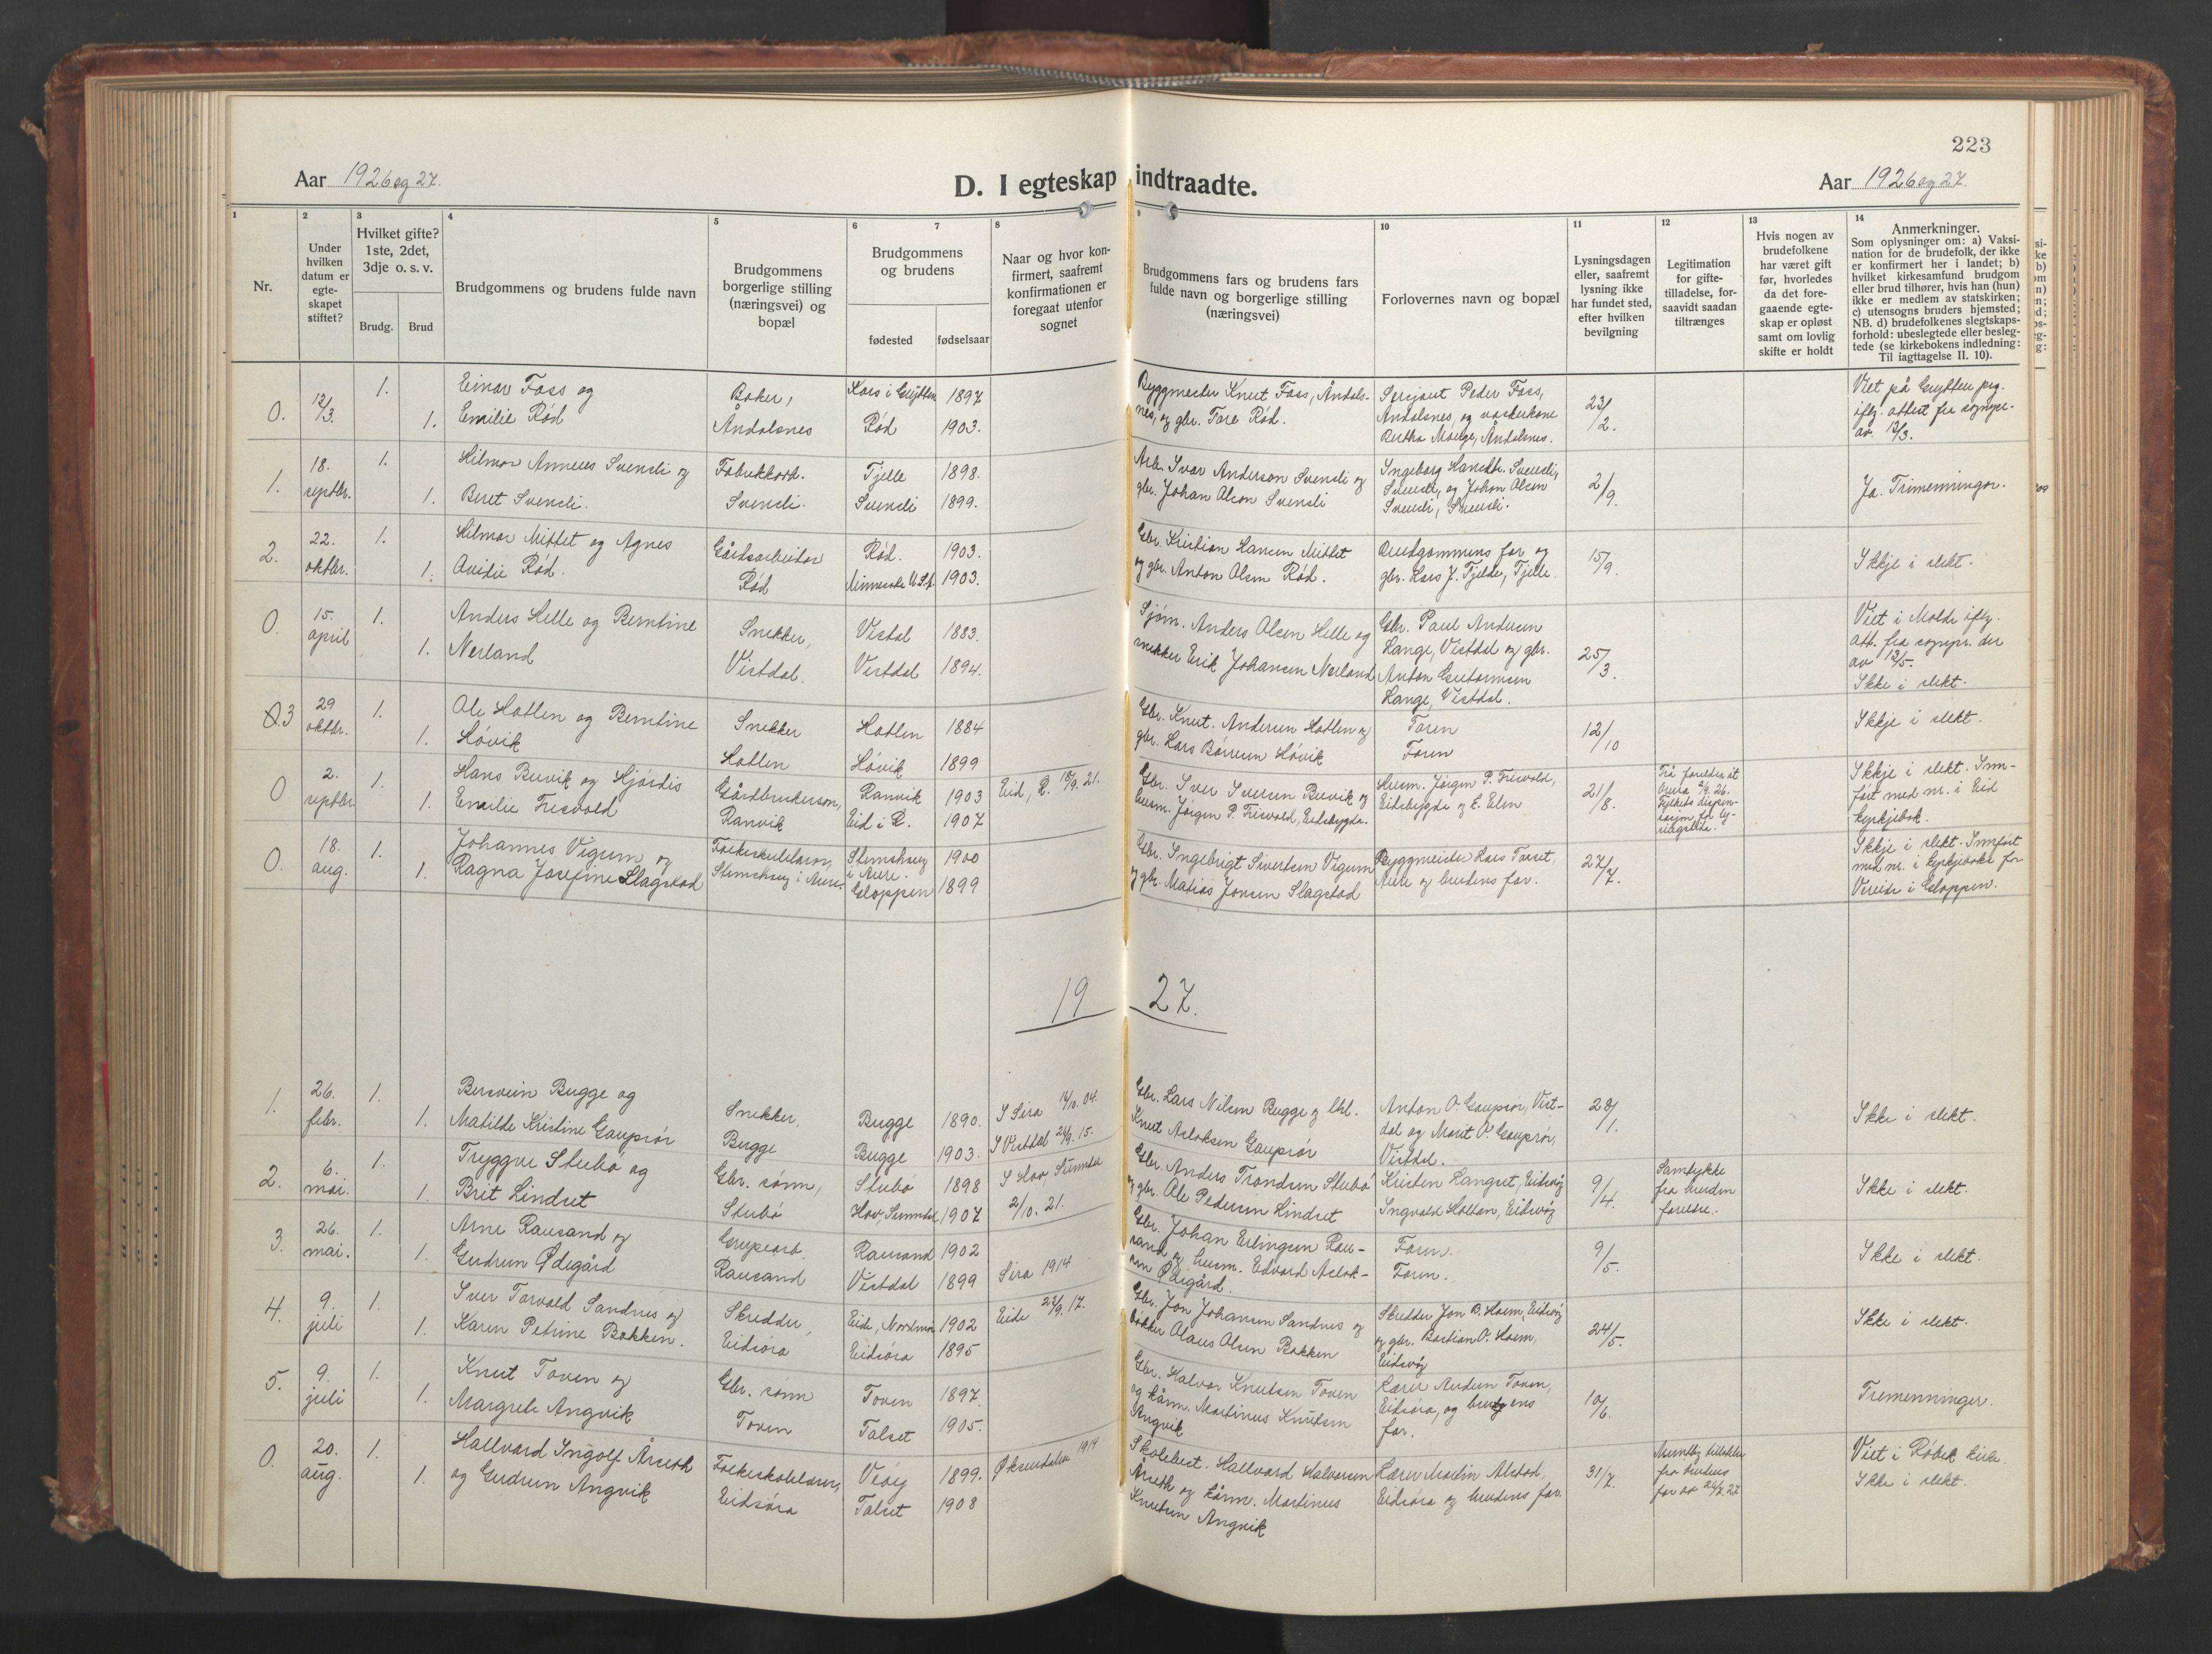 223
Aar 1926 og 27.
D. I egteskap indtraadte.
Aar 1926 og 27.
1
2
3
4
5
6
7
8
9
10
11
12
13
14
Nr.
Under
hvilken
datum er
egte-
skapet
stiftet?
Hvilket gifte?
1ste, 2det,
3dje o. s. v.
Brudg.
Brud
Brudgommens og brudens fulde navn
Brudgommens
borgerlige stilling
(næringsvei) og
bopæl
Brudgommens
og brudens
fødested
fødselsaar
Naar og hvor kon-
firmert, saafremt
konfirmationen er
foregaat utenfor
sognet
Brudgommens fars og brudens fars
fulde navn og borgerlige stilling
(næringsvei)
Forlovernes navn og bopæl
Lysningsdagen
eller, saafremt
lysning ikke
har fundet sted,
efter hvilken
bevilgning
Legitimation
for gifte-
tilladelse, for-
saavidt saadan
tiltrænges
Hvis nogen av
brudefolkene
har været gift
før, hvorledes
da det fore-
gaaende egte-
skap er opløst
samt om lovlig
skifte er holdt
Anmerkninger.
Som oplysninger om: a) Vaksi-
nation for de brudefolk, der ikke
er konfirmert her i landet; b)
hvilket kirkesamfund brudgom
eller brud tilhører, hvis han (hun)
ikke er medlem av statskirken;
c) utensogns bruders hjemsted;
NB. d) brudefolkenes slegtskaps-
forhold: ubeslegtede eller besleg-
tede (se kirkebokens indledning:
Til iagttagelse II. 10).
0.
12/3.
1.
1.
Einar Foss og
Emilie Rød
Baker,
Åndalsnes
Hors i Grytten 1897
Rød 1903.
Byggmester Knut Foss, Åndals-
nes, og gbr. Tore Rød.
Sersjant Peder Foss,
Åndalsnes, og vaskerkone
Mauge, Åndalsnes.
23/2.
Viet på Grytten prg.
iflg. attest fra sognepr.
av 12/3.
1.
18.
septbr.
1.
1.
Hilmar Svensli og
Beret Svensli.
Fabrikkarb.
Svensli.
Tjelle 1898.
Svensli 1899.
Arb. Ivar Anderson Svensli og
gbr. Johan Olsen Svensli
Ingeborg Hansdtr. Svensli,
Svensli, og Johan Olsen
Svensli, Svensli.
2/9.
Ja. Trimenningar.
2.
22.
oktbr.
1.
1.
Hilmar Mittet og Agnes
Ovidie Rød.
Gårdsarbeider
Rød
Rød. 1903.
Minnesota U.S.A. 1903.
Gbr. Kristian Hansen Mittet
og gbr. Anton Olsen Rød.
Brudgommens far og
gbr. Lars J. Tjelde, Tjelle.
15/9.
Ikkje i slekt.
0.
15.
april
1.
1.
Anders Helle og Berntine
Nerland
Snekker,
Vistdal.
Vistdal 1883.
Vistdal 1894.
Sjøm. Anders Olsen Helle og
snekker Erik Johansen Nerland
Gbr. Paul Andersen
Hange, Vistdal og gbr.
Anton Guttormsen
Hange, Vistdal.
25/3.
Viet i Molde iflg.
att. fra sognepr. der
av 12/5.
Ikke i slekt.
3
29
oktbr.
1.
1.
Ole Hatlen og Berntine
Høvik
Snekker
Hatlen
Hatlen 1884
Høvik 1899
Gbr. Knut Andersen Hatlen og
gbr. Lars Børresen Høvik
Faren
Faren
12/10
Ikkje i slekt.
0
2.
septbr
1.
1.
Hans Buvik og Hjørdis
Emilie Fresvold
Gårdbrukerson,
Ranvik
Ranvik 1903
Eid i R. 1907
Eid, R. 18/9. 21.
Gbr. Iver Iversen Buvik og
husm. Jørgen P. Frisvold, Eidsbygda.
Husm. Jørgen P. Frisvold,
Eidsbygda og E. Elven
21/8.
Frå foreldre
Fylkets dispen-
sasjon
Ikkje i slekt. Inn-
ført med nr. i Eid
kyrkjebok.
0.
18.
aug.
1.
1.
Johannes Vigum og
Ragna Josefine Slagstad
Folkeskulelærer,
Stemshaug i Aure.
Stemshaug
i Aure. 1900
Gloppen 1899
Gbr. Ingebrigt Sivertsen Vigum
og gbr. Matias Jonsen Slagstad
Byggmeister Lars Torset,
Aure og brudens far.
27/7.
Ikkje i slekt. Innført
med nr. i kyrkjeboka for
Vereide i Gloppen.
19 27.
1.
26.
febr.
1.
1.
Bersvein Bugge og
Matilde Kristine Gauprør
Snekker,
Bugge
Bugge 1890.
Bugge 1903.
I Sira 14/10. 04.
I Vistdal 26/9. 15.
Gbr. Lars Nilsen Bugge og
Knut Aslaksen Gauprør
Anton O. Gauprør, Vist-
dal og Marit O. Gauprør,
Vistdal.
28/1.
Ikke i slekt.
2.
6.
mai.
1.
1.
Tryggve Stubø og
Brit Lindset
Gbr. sønn,
Stubø
Stubø 1898
Hov, Sunndal 1907
I Hov, Sunndal
2/10. 21.
Gbr. Anders Trondsen Stubø
og gbr. Ole Pedersen Lindset
Kristen Langset, Eidsvåg
Ingvald Holtan, Eidsvåg
9/4.
Samtykke
fra brudens
foreldre.
Ikke i slekt.
3.
26.
mai.
1.
1.
Arne Rausand og
Gudrun Ødegård
Grupearb.
Rausand
Rausand 1902
Vistdal 1899
Sira 1914
Gbr. Johan Erlingsen Rau-
sand og husm. Edvard Aslak-
sen Ødegård.
Faren.
Faren.
9/5.
Ikke i slekt.
4.
9.
juli
1.
1.
Iver Torvald Sandnes og
Karen Petrine Bakken.
Skredder,
Eidsøra
Eide, Nordmør 1902
Eidsøra 1895
Eide 22/9. 17.
Gbr. Jon Johansen Sandnes og
bøkker Olaus Olsen Bakken
Skredder Jon B. Hoem, Eidsvåg
og gbr. Bastian O. Hoem,
Eidsvåg
24/5.
Ikke i slekt.
5.
9.
juli
1.
1.
Knut Toven og
Margrete Angvik
Gbr. sønn
Toven
Toven 1897.
Talset 1905.
Gbr. Halvor Knutsen Toven
og kårm. Martinus Knutsen
Angvik
Lærer Anders Toven,
Eidsøra, og brudens
far.
10/6.
Tremenninger.
0.
20.
aug.
1.
1.
Hallvard Ingolf Årseth
og Gudrun Angvik
Folkeskolelærer,
Eidsøra
Veøy 1899.
Talset 1908
Øksendalen 1914
Skolebest. Hallvard Halvorsen
Årseth og kårm. Martinus
Knutsen Angvik
Lærer Martin Alstad,
Eidsøra og brudens far.
31/7.
Muntlig tillatelse
fra brudens
far av 24/7. 27
Viet i Røbek kirke.
Ikke i slekt.